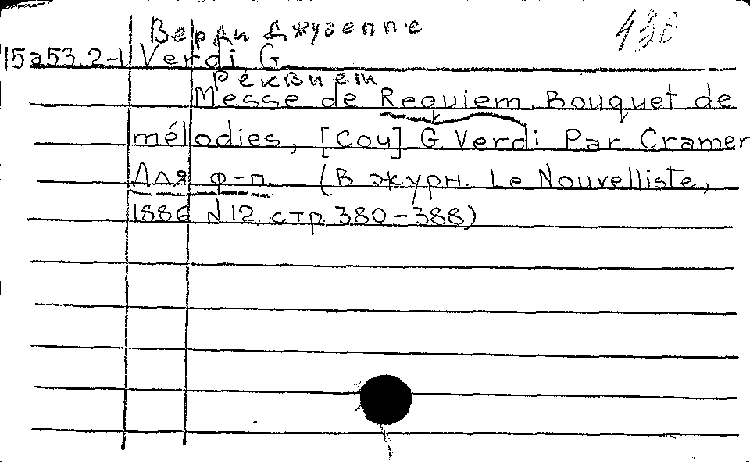 Верди Джузеппе
430
15а53.2-1 Verdi G.
Реквием
Messe de Requiem. Bouquet de
mélodies, [Соч] G. Verdi Par Cramer
Для ф-п. (В журн. Le Nouvelliste,
1886 N12, стр. 380-388)